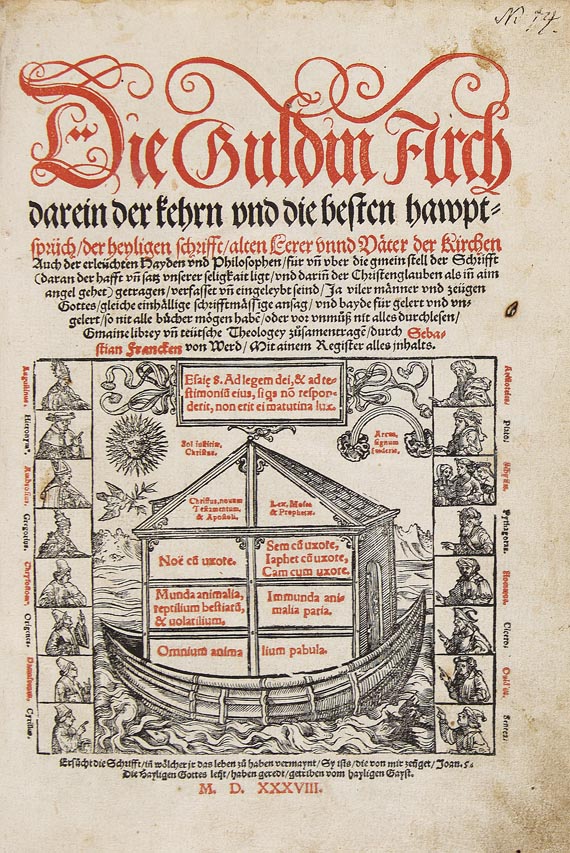 Die Guldin Arch
darein der kehrn vnd die besten hawpt=
sprüch/der heyligen schrifft/alten Lerer vnnd Väter der Kirchen
Auch der erleüchten Hayden vnd Philosophen/für vñ vber die gmein stell der Schrifft
(daran der hafft vñ satz vnserer seligkait ligt/vnd dariñ der Christenglauben als iñ aim
angel gehet) getragen/verfasset vñ eingeleybt seind/Ja viler männer vnd zeügen
Gottes/gleiche einhällige schrifftmässige ansag/vnd bayde für gelert vnd vn-
gelert/so nit alle bücher mögen habē/oder vor vnmüß nit alles durchlesen/
Gmaine librey vñ teütsche Theologey zůsamentragē/durch Seba-
stian Francken von Werd/Mit ainem Register alles jnhalts.
Esaię 8. Ad legem dei, & ad te-
stimoniū eius, si qs nō respon-
derit, non erit ei matutina lux.
Sol iusticiæ,
Christus.
Arcus,
signum
fœderis.
Christus, nouum
Testamentum,
& Apostoli.
Lex, Moses
& Prophetæ.
Noë cū uxore.
Sem cū uxore,
Iaphet cū uxore,
Cam cum uxore.
Munda animalia,
reptilium bestiarū,
& uolatilium.
Immunda ani-
malia paria.
Omnium anima
lium pabula.
Augustinus.
Hieronym9.
Ambrosius.
Gregorius.
Chrysostom9.
Origenes.
Cyrillus.
Aristoteles.
Plato.
Pythagoras.
Cicero.
Ouidius.
Seneca.
Ersücht die Schrifft/iñ wölcher jr das leben zů haben vermaynt/Sy ists/die von mir zeüget/Joan. 5.
Die Hayligen Gottes leüt/haben geredt/getriben vom hayligen Gayst.
M. D. XXXVIII.